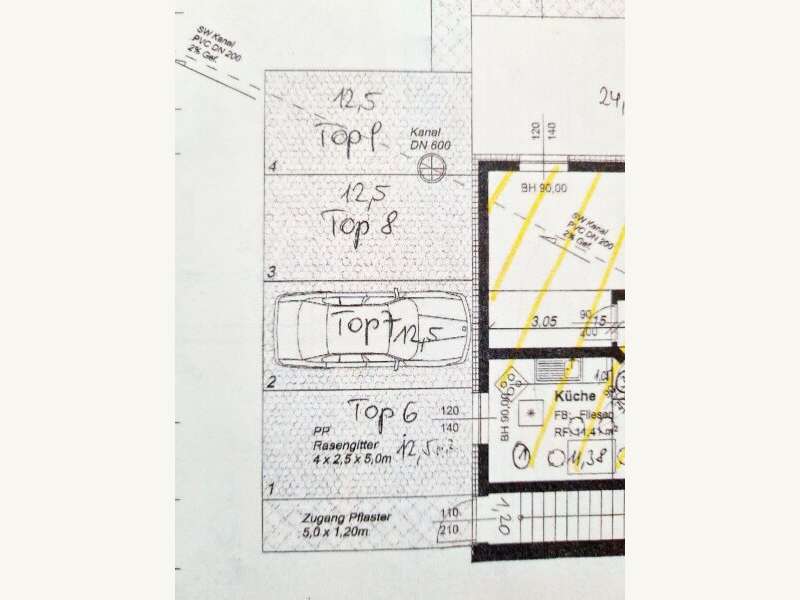 SW Kanal
PVC DN 200
2% Gef.
12,5
Top 9
Kanal
DN 600
4
24,
120
140
BH 90,00
12,5
Top 8
3
SW Kanal
PVC DN 200
2% Gef.
Top 7 12,5
2
3.05
90
200
15
Top 6
120
140
BH 90,00
PP
Rasengitter
4 x 2,5 x 5,0m
12,5 m²
1
Küche
FB: Fliesen
RF: 11.41 m²
1
11,38
Zugang Pflaster
5,0 x 1,20m
110
210
1,20